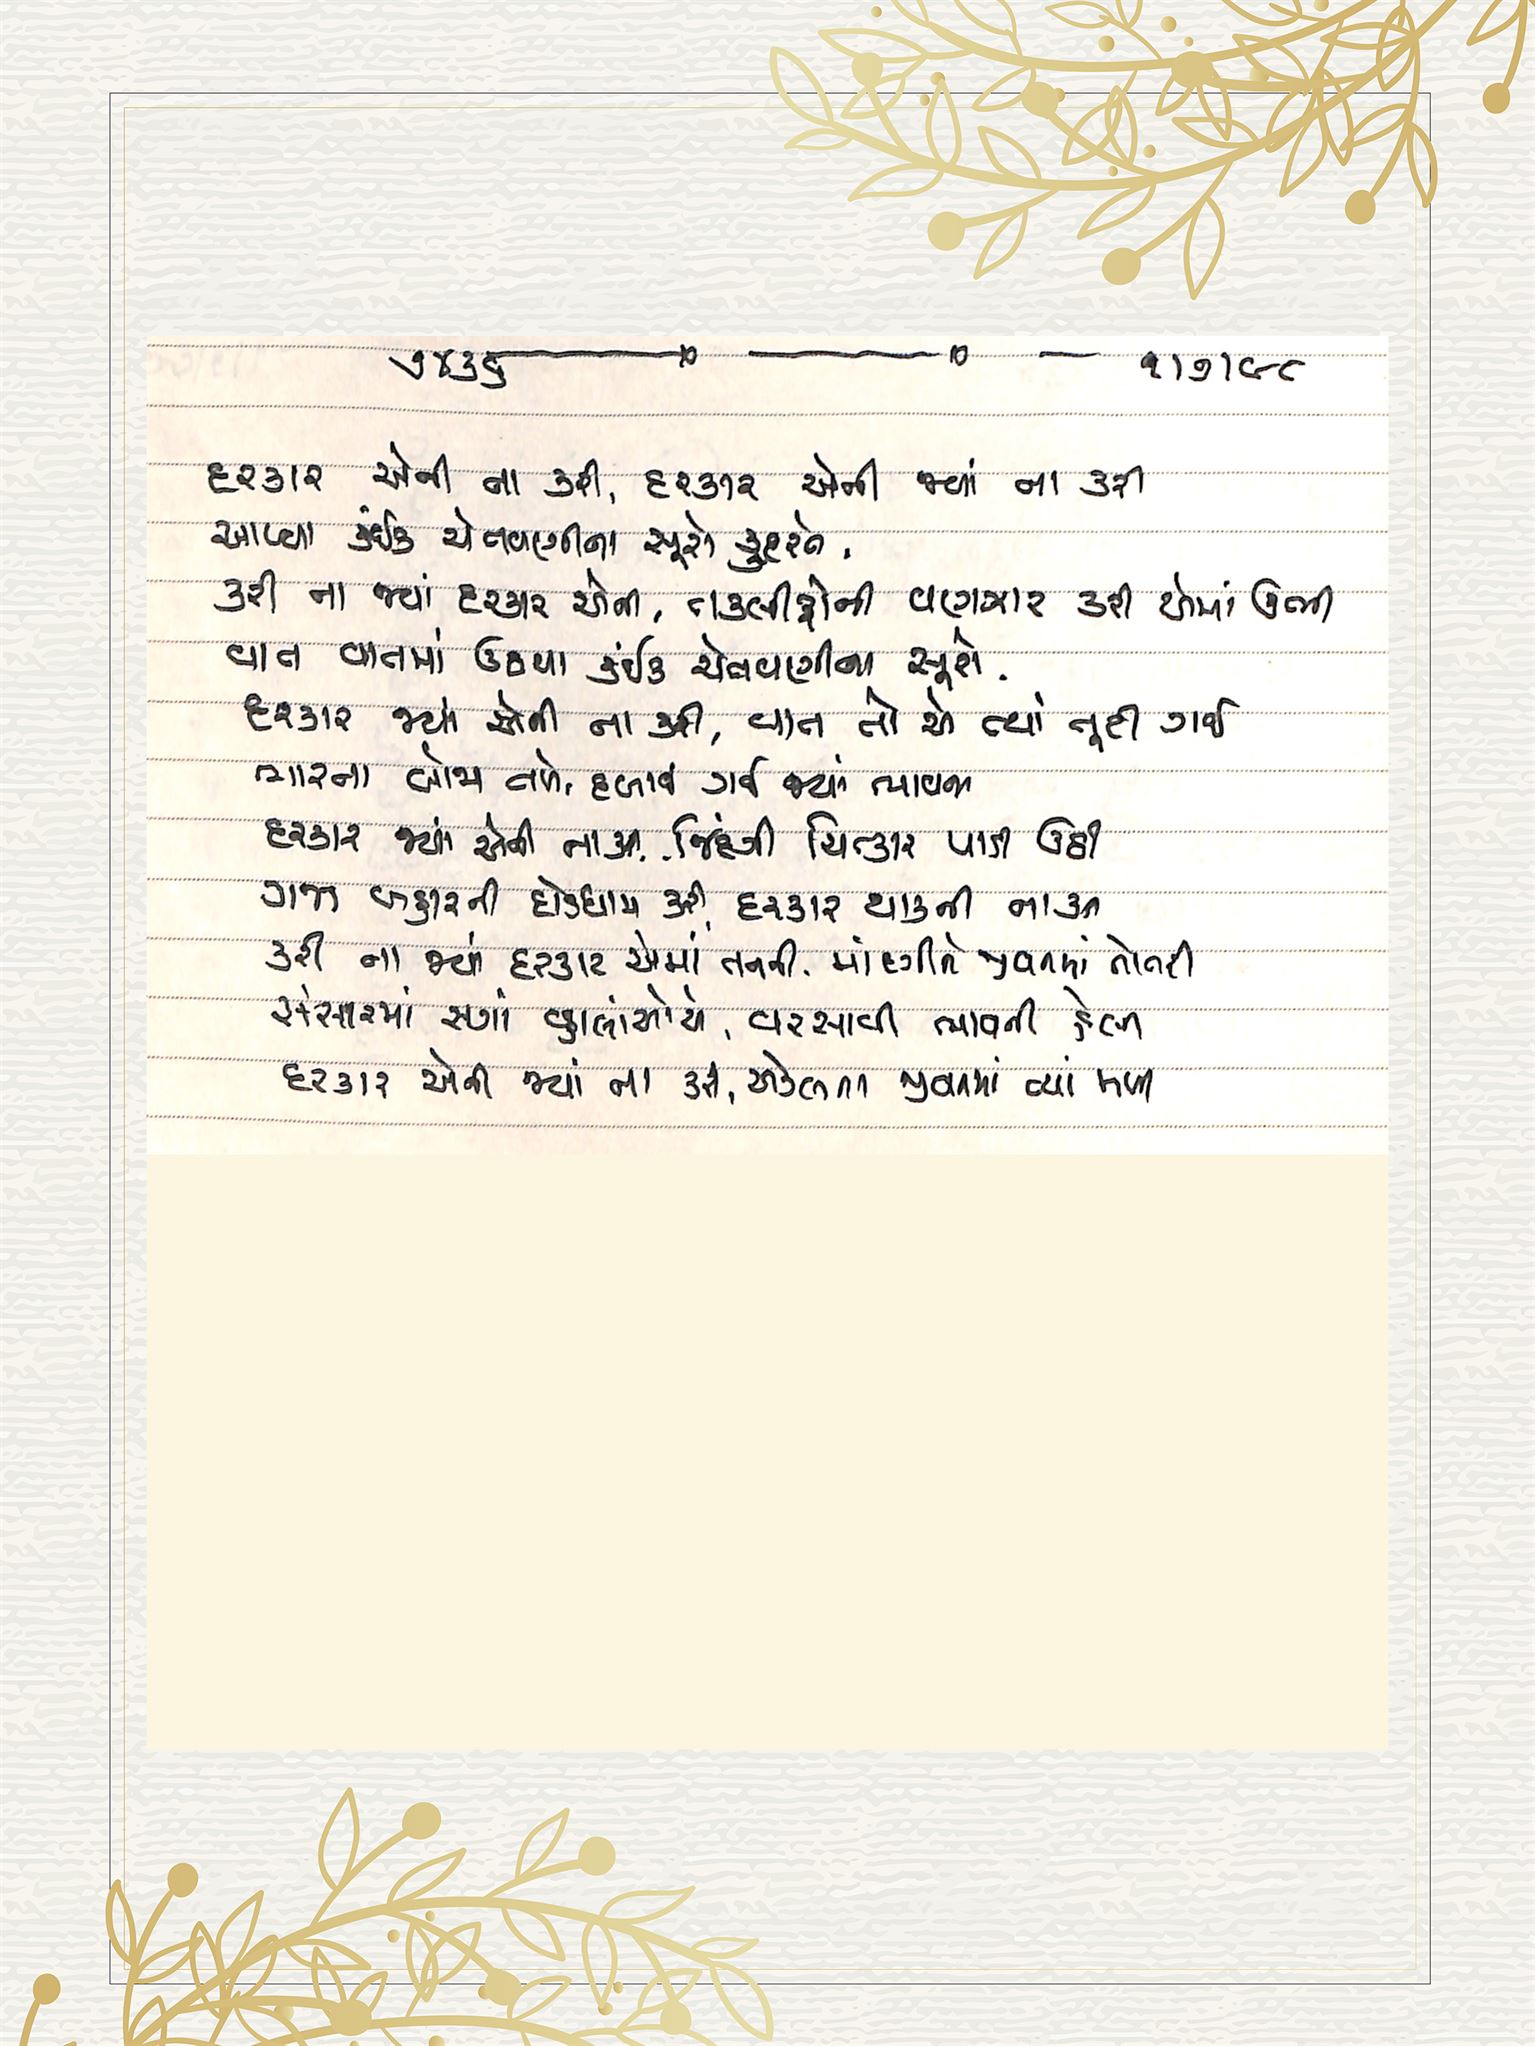 ૭૪૩૬ ૧।૭।૯૮
દરકાર એની ના કરી, દરકાર એની જ્યાં ના કરી
આપ્યા કંઈક ચેતવણીના સૂરો કુદરતે.
કરી ના જ્યાં દરકાર એની, તકલીફોની વણઝાર કરી એમાં ઊભી
વાત વાતમાં ઉઠયા કંઈક ચેતવણીના સૂરો.
દરકાર જ્યાં એની ના કરી, વાત તો એ ત્યાં તૂટી ગઈ
ભારના બોજ તળે, દબાઈ ગઈ જ્યાં ભાવના
દરકાર જ્યાં એની ના કરી.. જિંદગી ચિત્કાર પાડી ઉઠી
ગજા બહારની દોડધામ કરી, દરકાર થાકની ના કરી
કરી ના જ્યાં દરકાર એમાં તનની. માંદગીને જીવનમાં નોતરી
સંસારમાં સગાં વહાલાંઓએ, વરસાવી ભાવની હેલી
દરકાર એની જ્યાં ના કરી, એકલતા જીવનમાં ત્યાં મળી